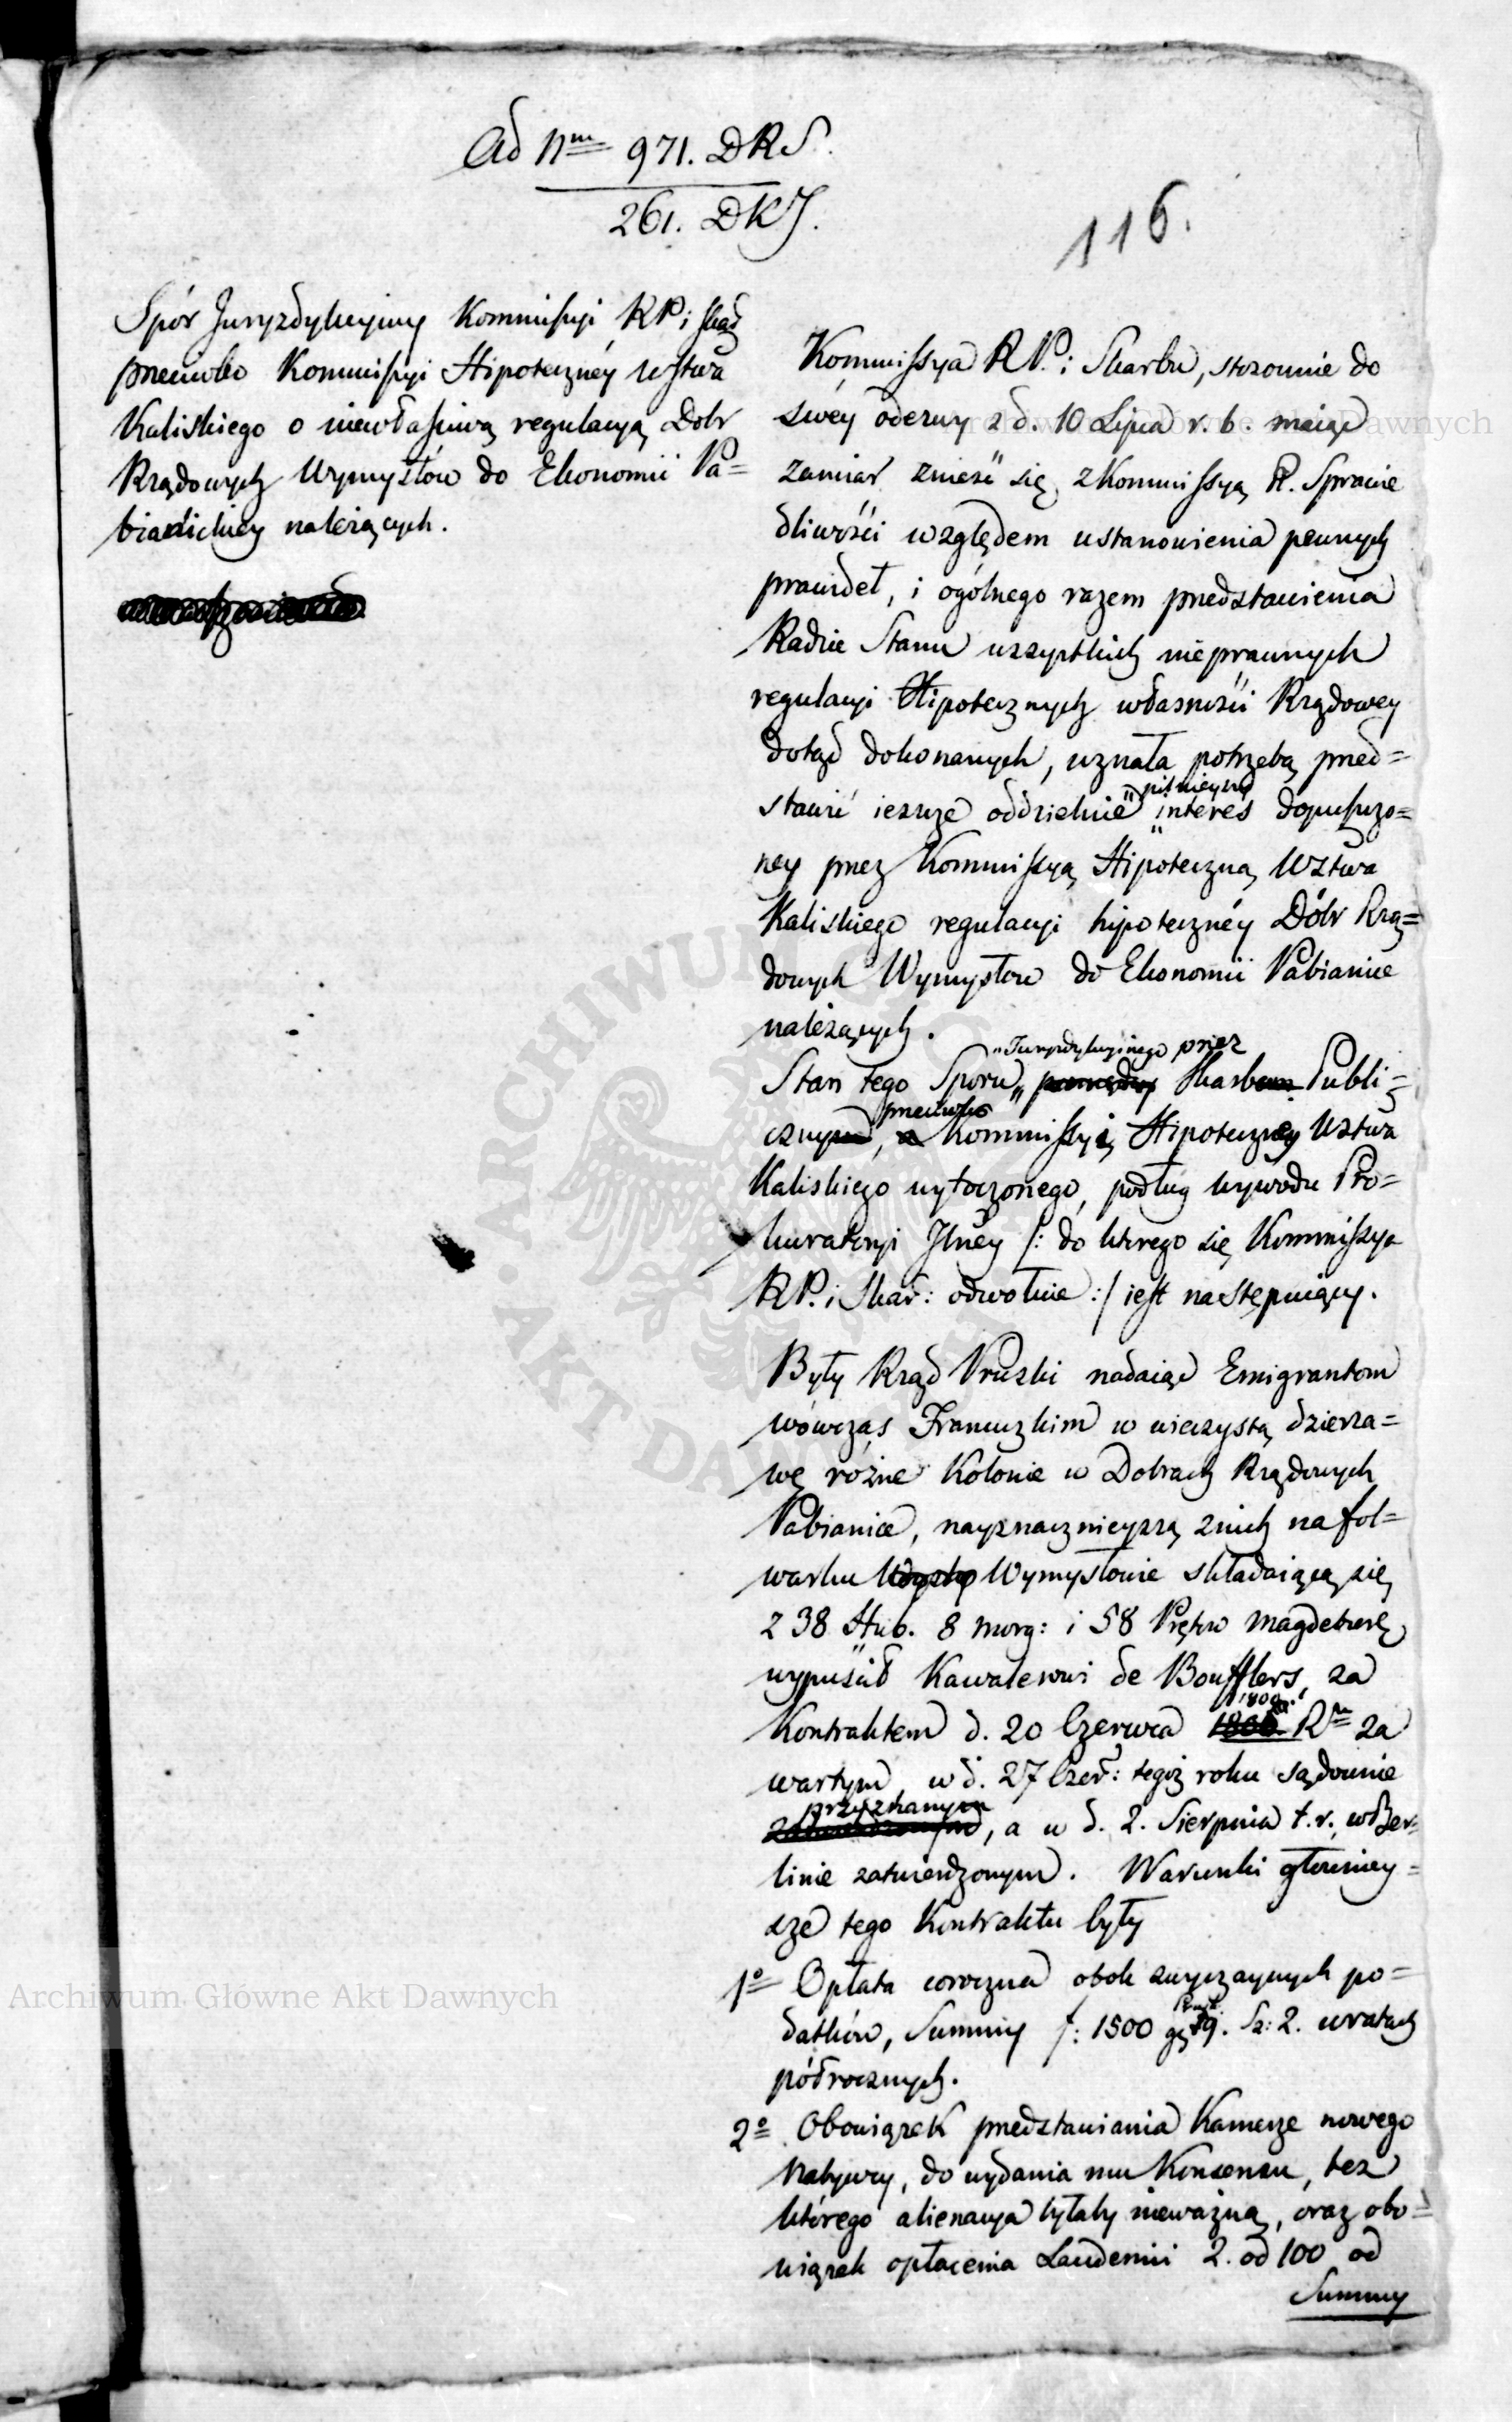 Ad Nm 971. DRS.
261. DKJ.
116.
Spór Juryzdykcyiny Kommissyi RP. i Skar
przeciwko Kommissyi Hipoteczney Wztwa
Kaliskiego o niewłaściwą regulacyą Dobr
Rządowych Wymysłow do Ekonomii Pa=
bianickiey należących.
Kommissya R. P. i Skarbu, stosownie do
swey odezwy z d. 10 Lipca r. b. maiąc
zamiar znieść się z Kommissyą R. Sprawie
dliwości względem ustanowienia pewnych
prawideł, i ogólnego razem przedstawienia
Radzie Stanu wszystkich nieprawnych
regulacyi Hipotecznych własności Rządowey
dotąd dokonanych, uznała potrzebą przed=
stawić ieszcze oddzielnie "pilnieyszy" interes dopuszczo=
ney przez Kommissyą Hipoteczną Wztwa
Kaliskiego regulacyi hipoteczney Dóbr Rzą=
dowych Wymysłow do Ekonomii Pabianice
należących.
"Juryzdykcyinego przez
Stan tego Sporu" pomiędzy Skarbem Publi=
przeciwko
cznym, a Kommissyi Hipoteczney Wztwa
Kaliskiego wytoczonego, podług wywodu Pro=
kuratoryi Jlney /: do którego się Kommissya
RP. i Skar: odwołuie :/ iest następuiący.
Były Rząd Pruski nadaiąc Emigrantom
wówczas Francuzkim w wieczystą dzierza=
wę różne Kolonie w Dobrach Rządowych
Pabianice, nayznacznieyszą z nich na fol=
warku Wymysłowie składaiącą się
z 38 Hub. 8 morg: i 58 Prętow magdebursk
wypuścił Kawalerowi de Boufflers, za
1800.
Kontraktem d. 20 Czerwca R. za
wartym, w d. 27 Czer: tegoż roku sądownie
przyznanym
, a w d. 2. Sierpnia t. r. w Ber=
linie zatwierdzonym. Warunki głowniey=
sze tego Kontraktu były
1o Opłata coroczna obok zwyczaynych po=
datków, Summy f: 1500 gr 29. Sz: 2. w ratach
półrocznych.
2o Obowiązek przedstawiania Kamerze nowego
Nabywcy, do wydania mu Konsensu, bez
którego alienacya byłaby nieważną, oraz obo=
wiązek opłacenia Laudemii 2. od 100 od
Summy
Archiwum Główne Akt Dawnych
ARCHIWUM GŁÓWNE AKT DAWNYCH